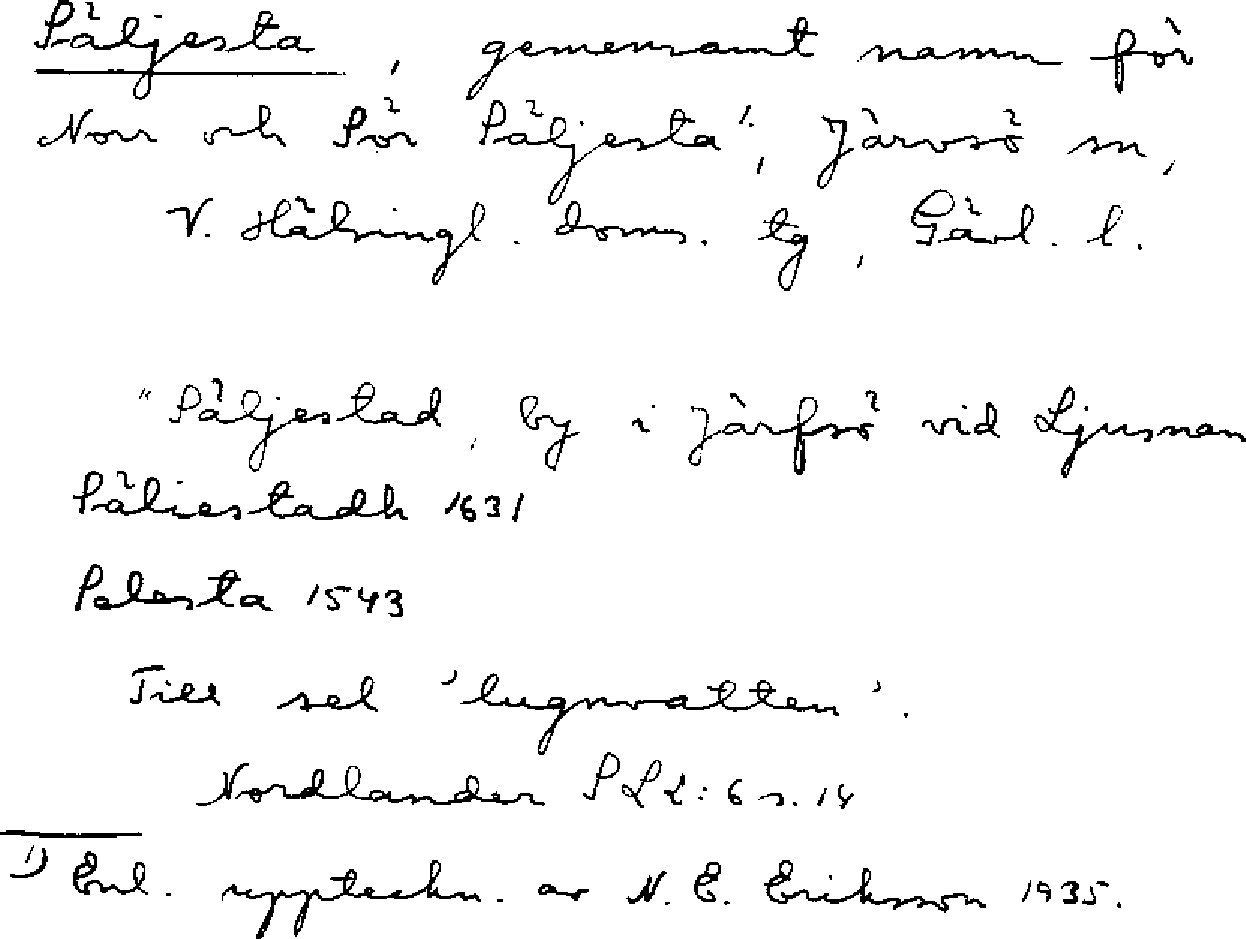 Säljesta, gemensamt namn för
Norr och Sör Säljesta¹⁾, Järvsö sn,
V. Hälsingl. doms. tg, Gävl. l.
"Säljestad, by i Järfsö vid Ljusnan
Säliestadh 1631
Selesta 1543
Till sel 'lugnvatten'.
Nordlander SLL: 6 s. 14
1) Enl. uppteckn. av N. E. Eriksson 1935.